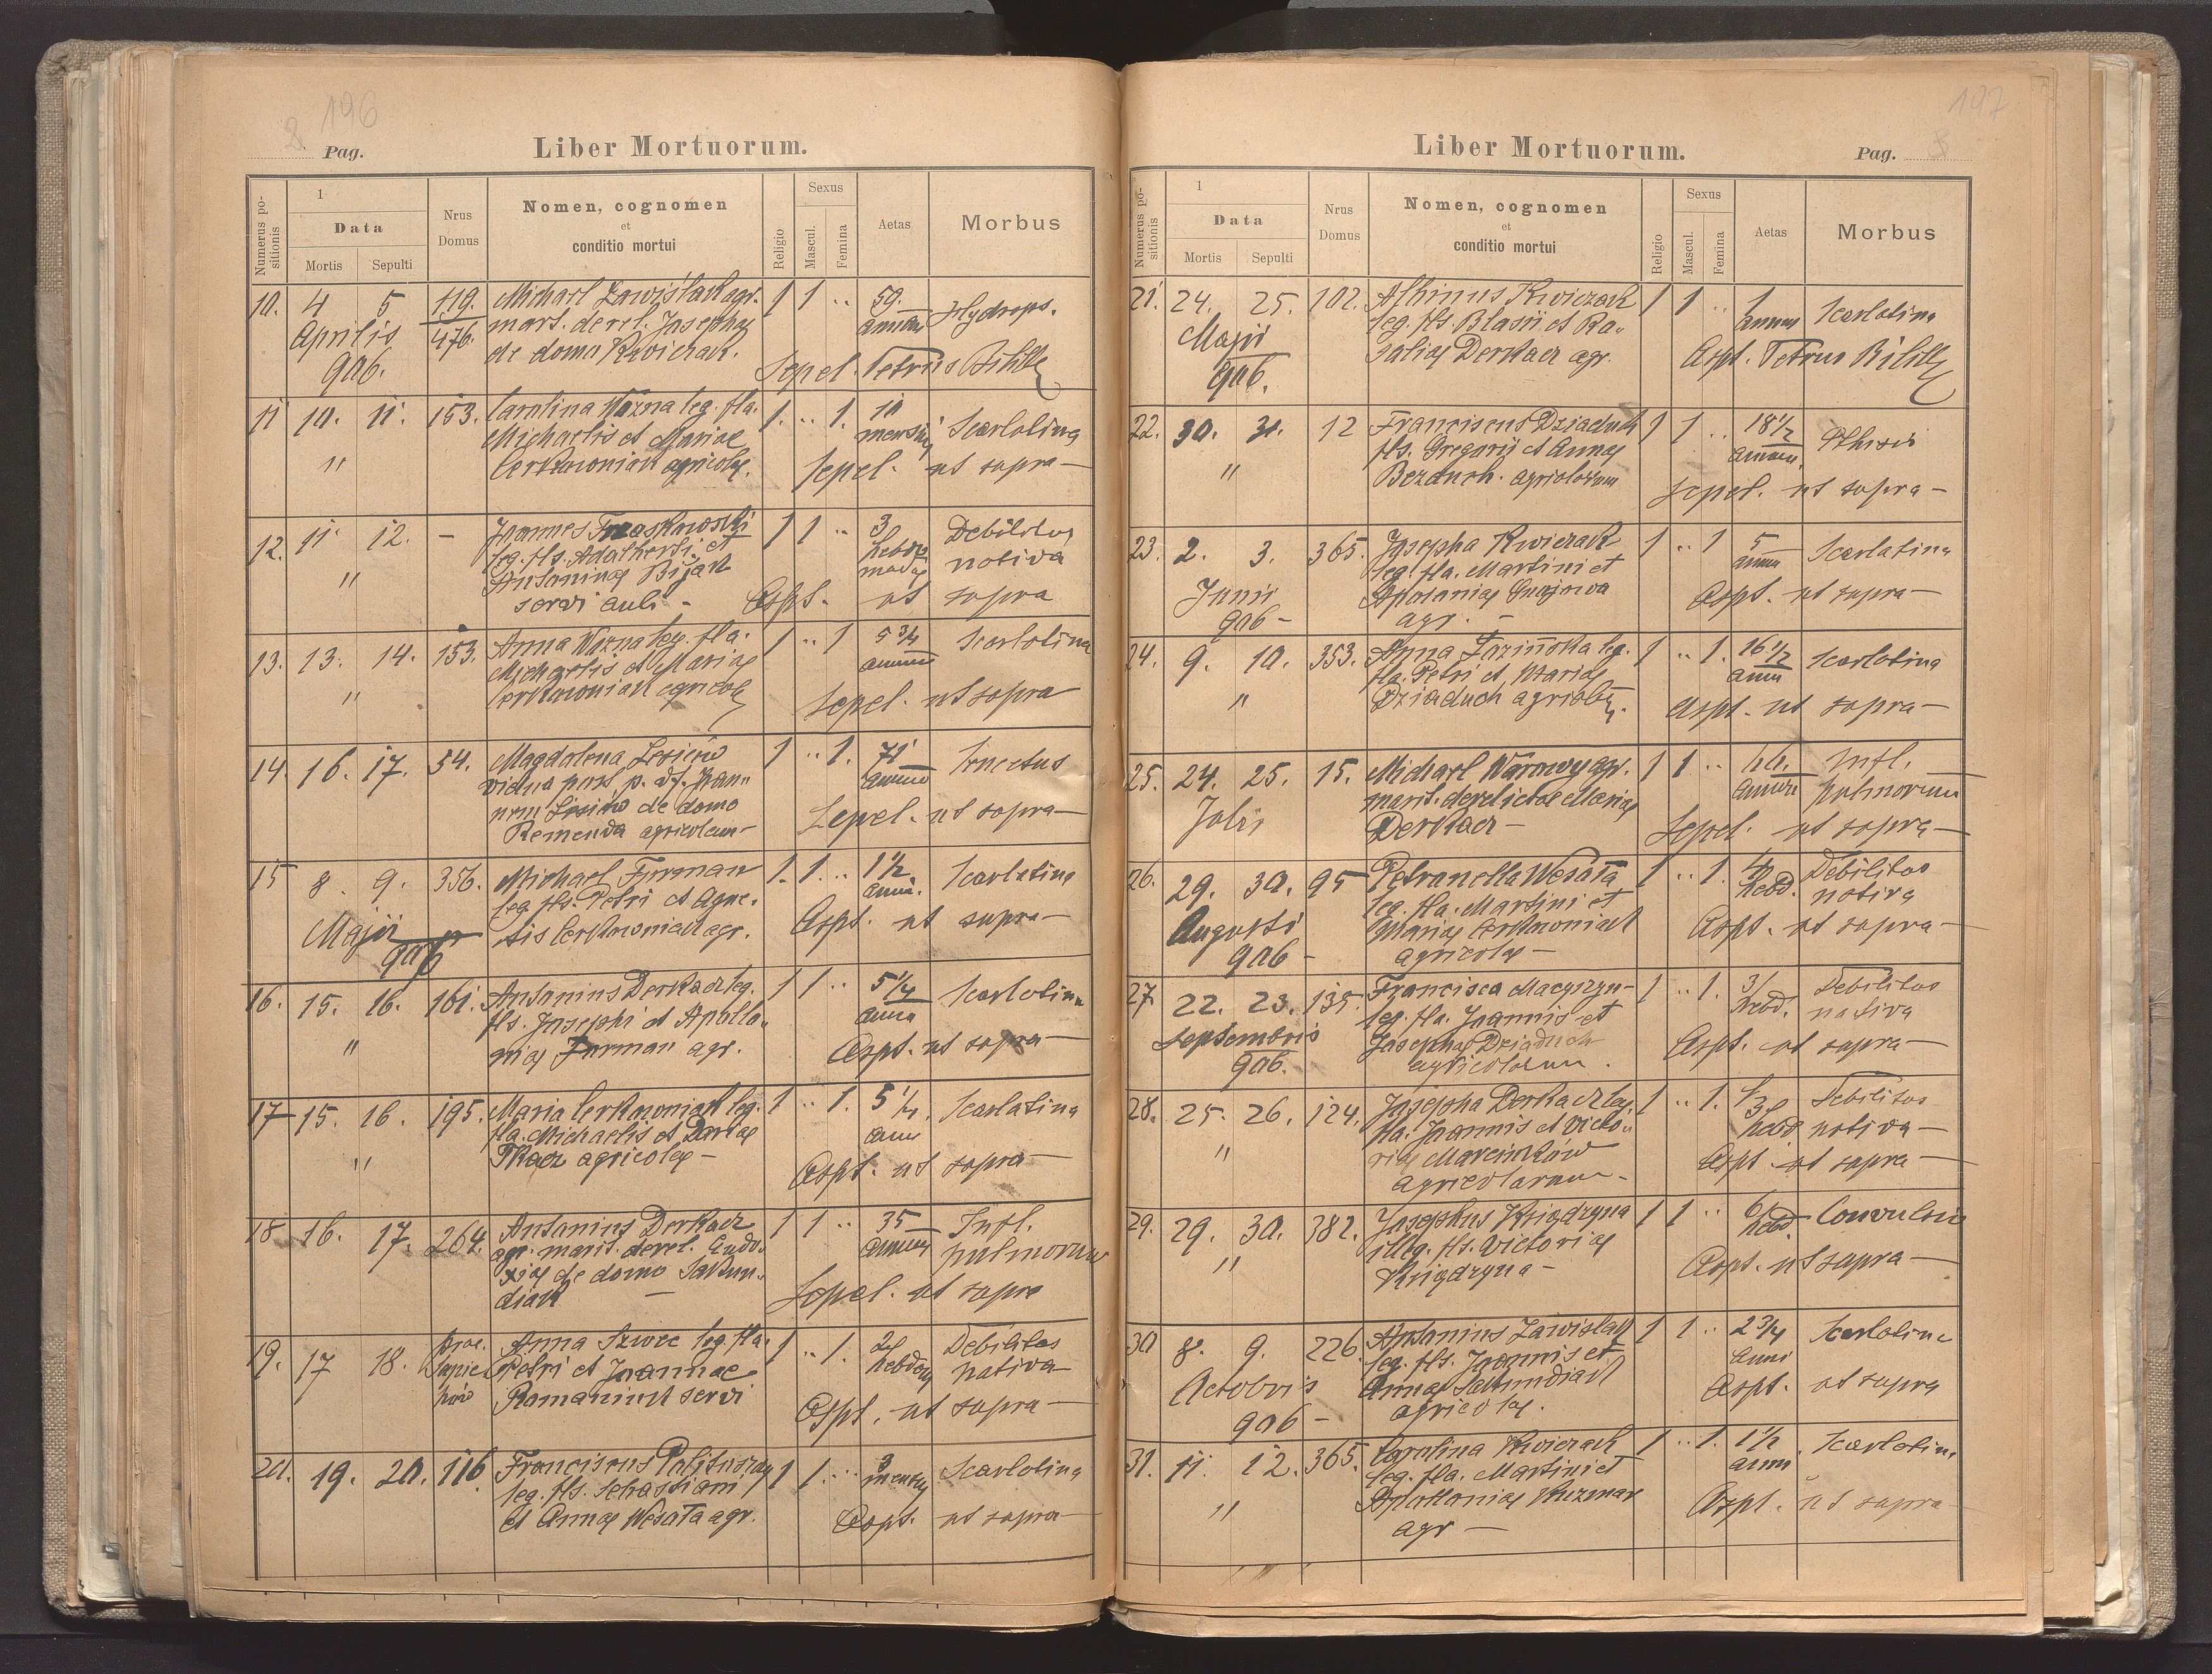 196
2 Pag.
Liber Mortuorum.
Numerus positionis
1
Data
Mortis Sepulti
Nrus Domus
Nomen, cognomen
et
conditio mortui
Religio
Sexus
Mascul.
Femina
Aetas
Morbus
10. 4 5 119. Michael Zawiślak agr. 1 1 .. 59. Hydrops.
Aprilis 476. mart. derel. Josephae annor
906. de domo Kwiczak. Sepel. Petrus Bilitt
11 10. 11. 153. Carolina Ważna leg. fla. 1. .. 1. 10 Scarlatina
Michaelis et Mariae mensium
" Cerkowniak agricolae. Sepel. ut supra —
12. 11. 12. — Joannes Fraskowski 1 1 .. 3 Debilitas
leg. fls. Adalberti et hebdo nativa
" Antoninae Bijak madae
servi auli - Aspt. ut supra
13. 13. 14. 153. Anna Ważna leg. fla. 1 .. 1 5 3/4 Scarlatina
Michaelis et Mariae annor
" Cerkowniak agricolae Sepel. ut supra
14. 16. 17. 54. Magdalena Lisiero 1 .. 1. 71 Senectus
vidua post p. df. Joan annor
nem Lisiero de domo Sepel. ut supra —
Remenda agricolarum —
15 8. 9. 356. Michael Furman 1. 1. .. 1 1/2 Scarlatina
leg. fls. Petri et Agne- anni.
Maji tis Cerkowniak agr. Aspt. ut supra —
906
16. 15. 16. 161. Antonius Derkacz leg. 1 1 .. 5 1/4 Scarlatina
fls. Josephi et Apollo- anna
" niae Furman agr. Aspt. ut supra —
17 15. 16. 195. Maria Cerkowniak leg. 1 .. 1. 5 1/2. Scarlatina
fla. Michaelis et Dorotae anni
" Tkacz agricolae — Aspt. ut supra —
18 16. 17. 264. Antonius Derkacz 1 1 .. 35 Infl.
agr. marit. derel. Eudo- annor pulmonum
xiae de domo Sakun-
diak — Sepel. ut supra
19. 17 18. Anna Szwec leg. fla. 1 .. 1. 2 Debilitas
Petri et Joannae hebdom nativa
Romaniuk servi Aspt. ut supra —
20. 19. 20. 116 Franciscus Palituszay 1 1. ... 3 Scarlatina
leg. fls. Sebastiani menses
et Annae Wesata agr. Aspt. ut supra —
197
Liber Mortuorum.
Pag. 3
Numerus positionis
1
Data
Mortis Sepulti
Nrus Domus
Nomen, cognomen
et
conditio mortui
Religio
Sexus
Mascul.
Femina
Aetas
Morbus
21. 24. 25. 102. Albinus Kwiczak 1 1 .. 1 Scarlatina
Maji leg. fls. Blasii et Ro- annus
906. saliae Derkacz agr. Aspt. Petrus Bilitt
22. 30. 31. 12 Franciscus Dziaduch 1 1 .. 18 1/2 Pthisis
fls. Gregorii et Annae annor.
" Bezduch. agricolarum Sepel. ut supra —
23. 2. 3. 365. Josepha Kwiczak 1 .. 1 5 Scarlatina
leg. fla. Martini et anna
Junii Apoloniae
906 - agr. — Aspt. ut supra —
24. 9. 10. 353. Anna Łozińska leg. 1 .. 1. 16 1/2 Scarlatina
fla. Petri et Mariae anni
" Dziaduch agricolar. Aspt. ut supra —
25. 24. 25. 15. Michael Warowy agr. 1 1 .. 44. Infl.
marit. derelictae Mariae annor pulmonum
Julii Derkacz — Sepel. ut supra —
26. 29. 30. 95 Petronella Wesata 1 .. 1. 4 Debilitas
leg. fla. Martini et hebd. nativa
Augusti Mariae Cerkowniak Aspt. ut supra —
906 - agricolae —
27 22. 23. 135. Francisca Maczyzyn- 1 .. 1. 3/ Debilitas
leg. fla. Joannis et hebd. nativa
Septembris Josephae Dziaduch Aspt. ut supra —
906. agricolarum.
28. 25. 26. 124. Josepha Derkacz leg. 1 .. 1. 3 Debilitas
fla. Joannis et Victo- hebd nativa —
" riae Marcinków Aspt. ut supra —
agricolarum -
29. 29. 30. 382. Josephus Księdzyna 1 1 .. 6 Convulsio
illeg. fls. Victoriae hebd.
" Księdzyna — Aspt. ut supra —
30 8. 9. 226. Antonius Zawiślak 1 1 .. 2 3/4 Scarlatina
leg. fls. Joannis et anni
Octobris Annae Sakundiak Aspt. ut supra
906 - agricolae.
31. 11. 12. 365. Carolina Kwiczak 1 .. 1. 1 1/2 Scarlatina
leg. fla. Martini et anni
" Apolloniae Kuzmar Aspt. ut supra —
agr —